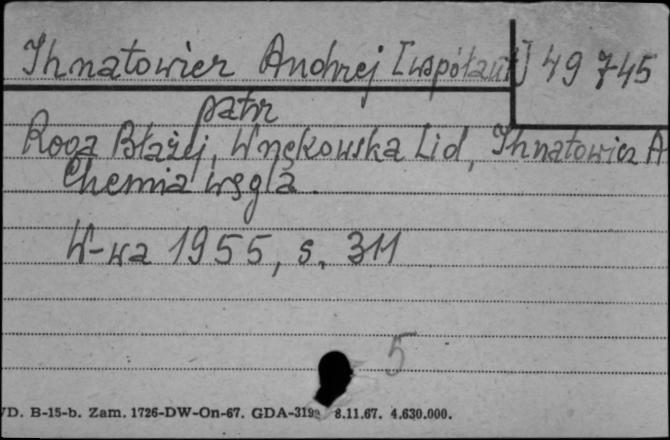 Ihnatowicz Andrzej [współaut] 49 745
patrz
Roga Błażej, Wnękowska Lid, Ihnatowicz A
Chemia węgla.
W-wa 1955, s. 311
5
VD. B-15-b. Zam. 1726-DW-On-67. GDA-319 8.11.67. 4.630.000.